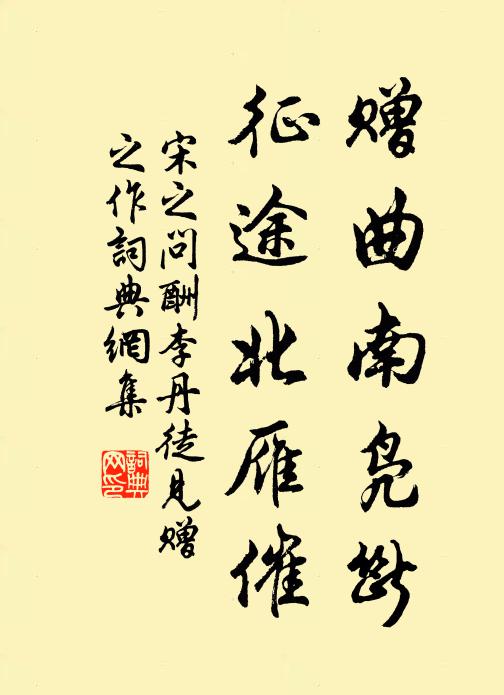 赠曲南凫断
征途北雁催
宋之问酬李丹徒见赠
之作詞典網集
詞典
网印